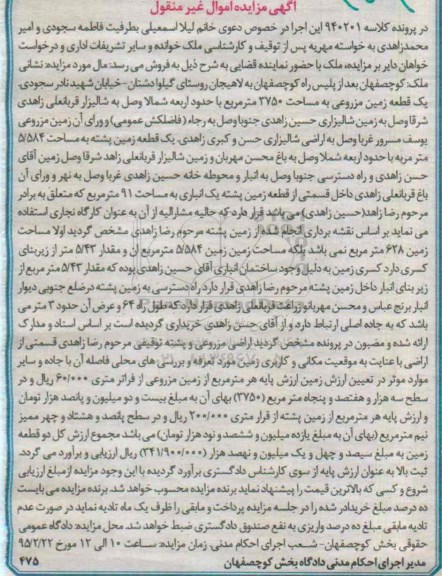 آگهی مزایده اموال غیر منقول
در پرونده کلاسه ۹۴۰۲۰۱ این اجرا در خصوص دعوی خانم لیلا اسمعیلی بطرفیت فاطمه سجودی و امیر
محمدزاهدی به خواسته مهریه پس از توقیف و کارشناسی ملک خوانده و سایر تشریفات اداری و درخواست
خواهان دایر بر مزایده، ملک با حضور نماینده قضایی به شرح ذیل به فروش می رسد: مال مورد مزایده: نشانی
ملک: کوچصفهان بعد از پلیس راه کوچصفهان به لاهیجان روستای گیلوا دشتان - خیابان شهید نادر سجودی.
یک قطعه زمین مزروعی به مساحت ۳۷۵۰ مترمربع با حدود اربعه شمالا وصل به شالیزار قربانعلی زاهدی
شرقا وصل به زمین شالیزاری حسین زاهدی جنوبا وصل به رجاه (فاضلکش عمومی) و ورای آن زمین مزروعی
یوسف مسرور غربا وصل به اراضی شالیزاری حسن و کبری زاهدی. یک قطعه زمین پشته به مساحت ۵/۵۸۴
متر مربع با حدود اربعه شملا وصل به باغ محسن مهربان و زمین شالیزار قربانعلی زاهد شرقا وصل زمین آقای
حسن زاهدی و راه دسترسی جنوبا وصل به انبار و محوطه خانه حسین زاهدی غربا وصل به نهر و ورای آن
باغ قربانعلی زاهدی داخل قسمتی از قطعه زمین پشته یک انباری به مساحت ۹۱ مترمربع که متعلق به برادر
مرحوم رضا زاهد(حسین زاهدی) می باشد قرار دارد که حالیه مشارالیه از آن به عنوان کارگاه نجاری استفاده
می نماید بر اساس نقشه برداری انجام شده از زمین پشته مرحوم رضا زاهدی مشخص گردید اولا مساحت
زمین ۶۲۸ متر مربع نمی باشد بلکه مساحت زمین زمین ۵/۵۸۴ مترمربع ان و مقدار ۵/۴۳ متر از زیربنای
کسری دارد کسری زمین به دلیل وجود ساختمان انباری آقای حسین زاهدی بوده که مقدار ۵/۴۳ متر مربع از
زیر بنای انبار داخل زمین پشته مرحوم رضا زاهدی قرار دارد راه دسترسی به زمین پشته درضلع جنوبی دیوار
انبار برنج عباس و محسن مهربانو زراعت قربانعلی زاهدی قرار دارد که طول راه ۶۴ و عرض آن حدود ۳ متر می
باشد که به جاده اصلی ارتباط دارد و از آقای حسن زاهدی خریداری گردیده است بر اساس اسناد و مدارک
ارائه شده و مضبون در پرونده مشخص گردید اراضی مزروعی و پشته توقیفی مرحوم رضا زاهدی قسمتی از
اراضی با عنایت به موقعیت مکانی و کاربری زمین مورد تعرفه و بررسی های محلی فاصله آن با جاده و سایر
موارد موثر در تعیین ارزش زمین ارزش پایه هر مترمربع از زمین مزروعی از قراتر متری ۶۰/۰۰۰ ریال و در
سطح سه هزار و هفتصد و پنجاه متر مربع (۳۷۵۰) بهای آن به مبلغ بیست و دو میلیون و پانصد هزار تومان
و ارزش پایه هر مترمربع از زمین پشته از قرار متری ۲۰۰/۰۰۰ ریال و در سطح پانصد و هشتاد و چهر ممیز
نیم مترمربع (بهای آن به مبلغ یازده میلیون و ششصد و نود هزار تومان) می باشد مجموع ارزش کل دو قطعه
زمین به مبلغ سیصد و چهل و یک میلیون و نهصد هزار (۳۴۱/۹۰۰/۰۰۰) ریال ارزیابی و برآورد می گردد.
ثبت بالا به عنوان ارزش پایه از سوی کارشناس دادگستری برآورد گردیده با این وجود مزایده از مبلغ ارزیابی
شروع و کسی که بالاترین قیمت را پیشنهاد نماید برنده مزایده محسوب خواهد شد. برنده مزایده می بایست
ده درصد مبلغ خریدادر شده را در جلسه مزایده پرداخت و مابقی را ظرف یک ماه تادیه نماید در صورت عدم
تادیه مابقی مبلغ ده درصد واریزی به نفع صندوق دادگستری ضبط خواهد شد. محل مزایده: دادگاه عمومی
حقوقی بخش کوچصفهان- شعب اجرای احکام مدنی. زمان مزایده: ساعت ۱۰ الی ۱۲ مورخ ۹۵/۲/۲۲
مدیر اجرای احکام مدنی دادگاه بخش کوچصفهان ۴۷۵